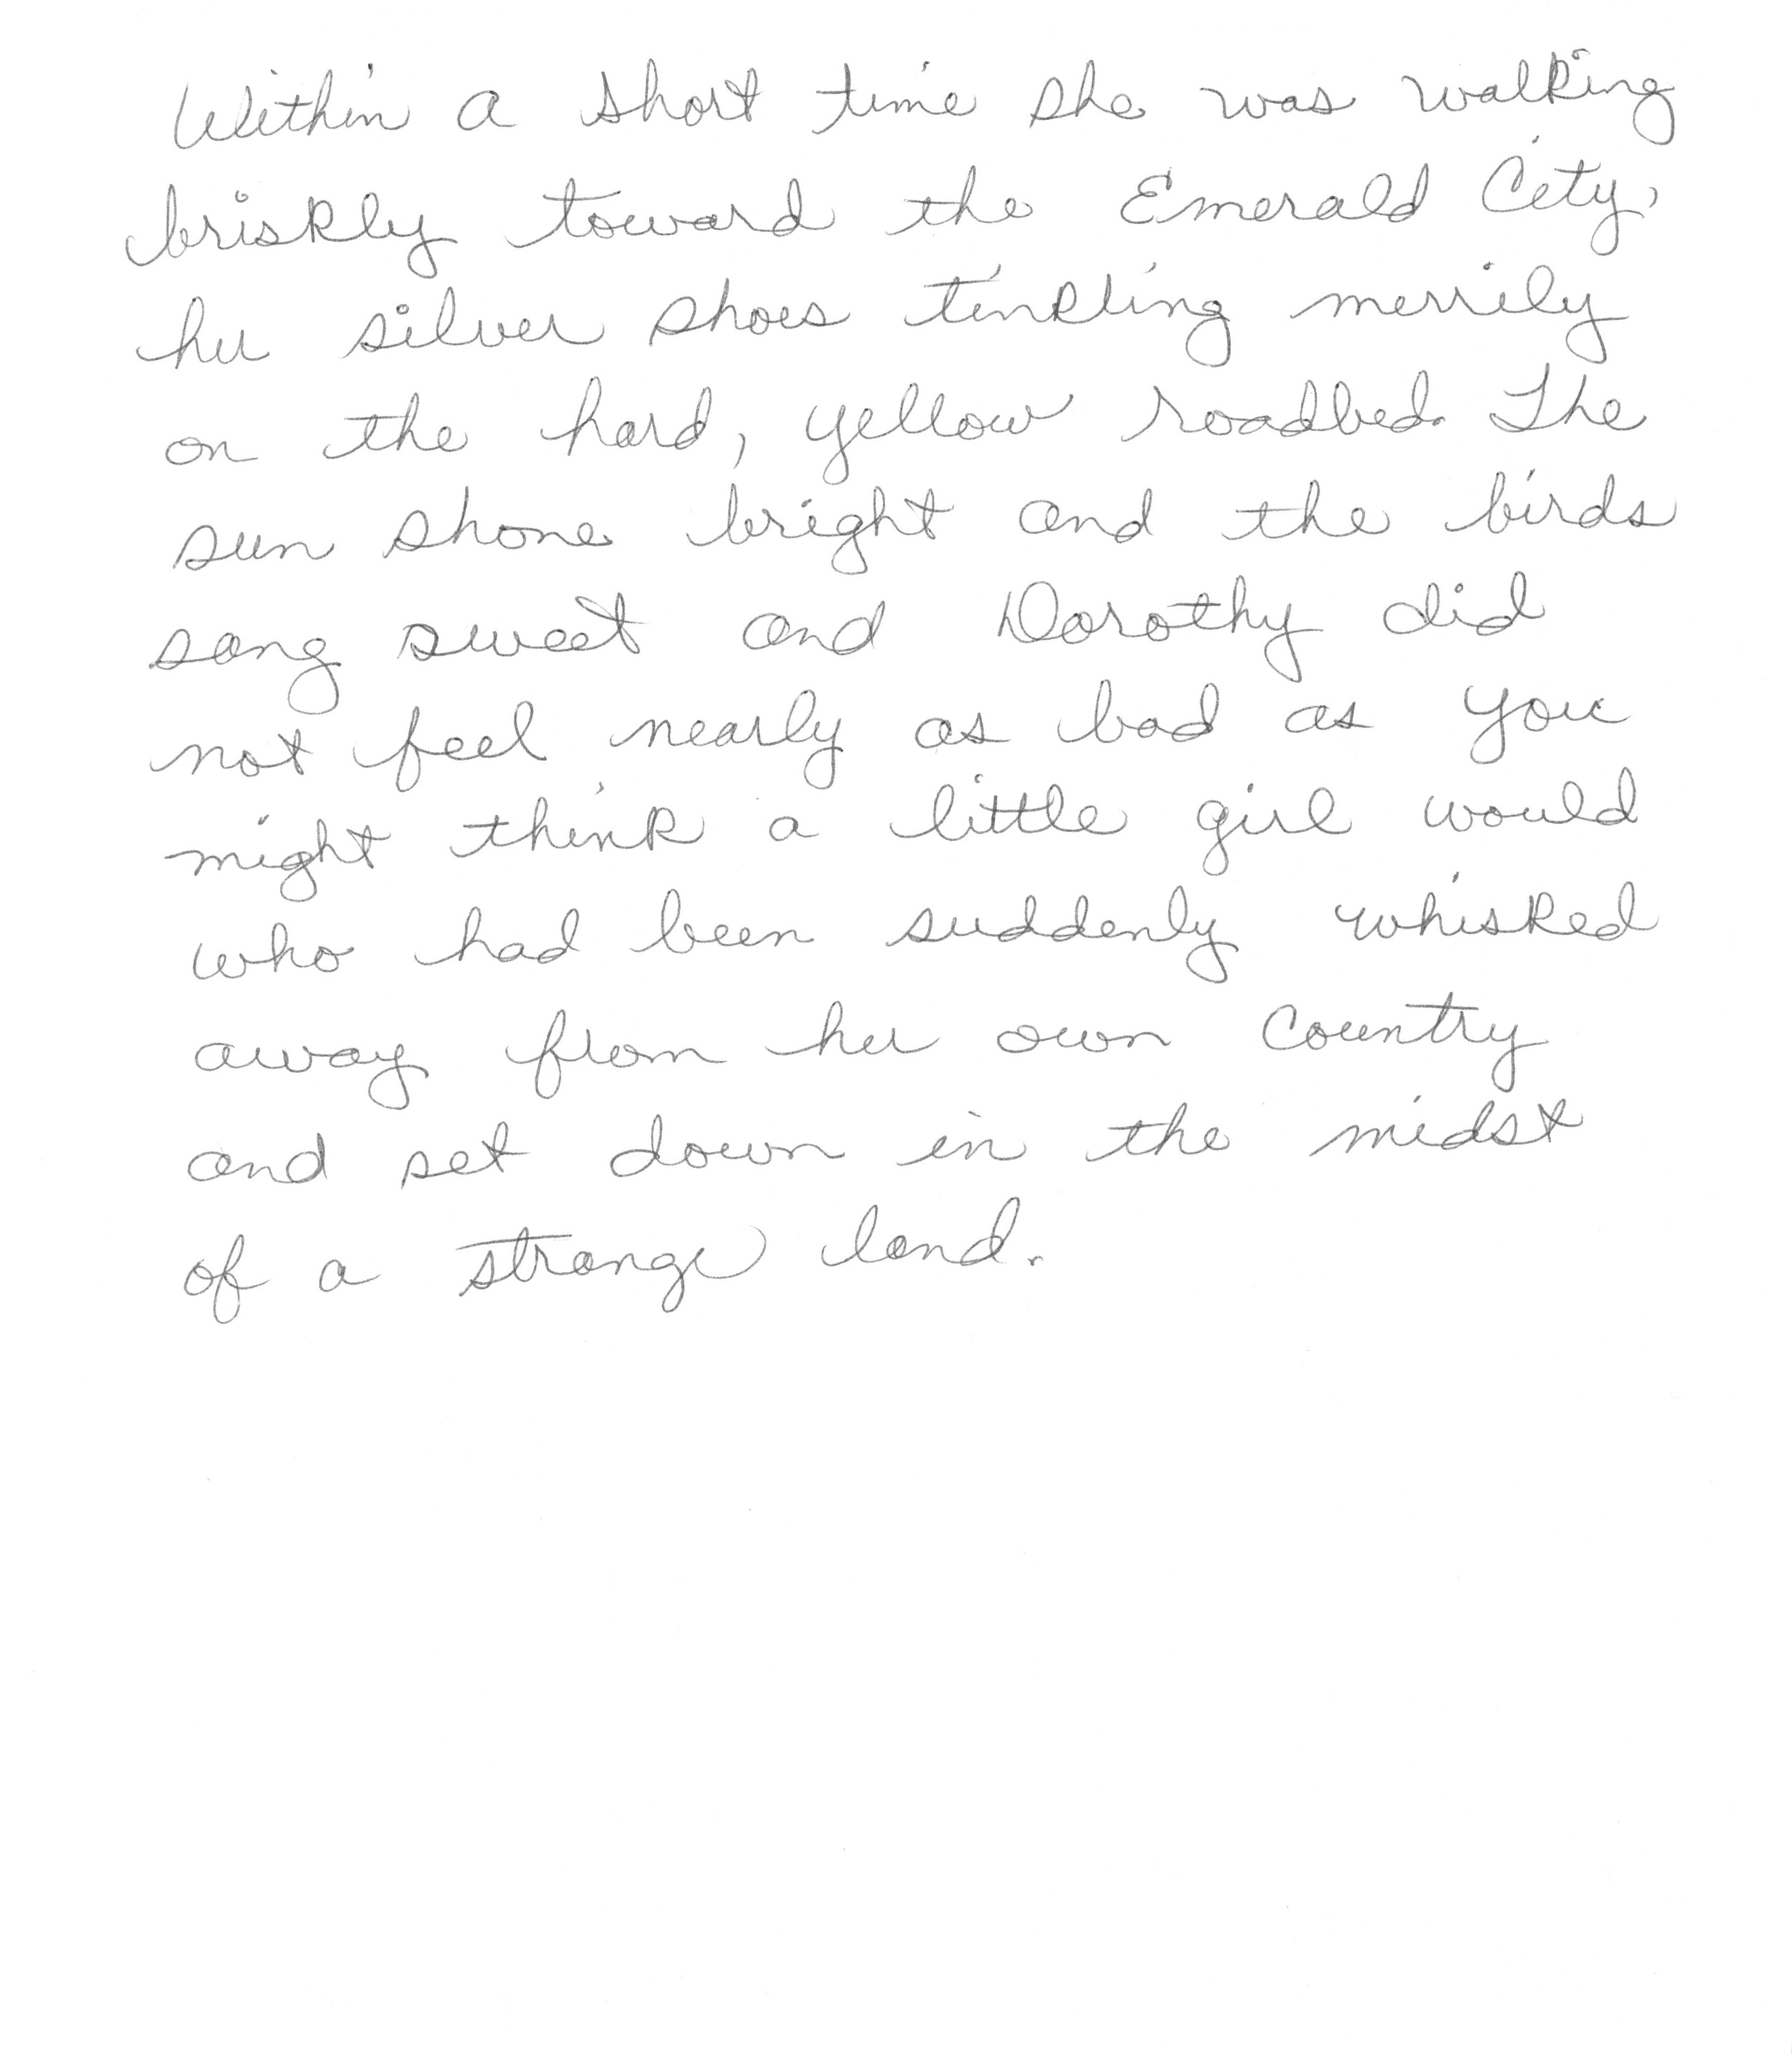 Within a short time she was walking
briskly toward the Emerald City,
her silver shoes tinkling merrily
on the hard, yellow roadbed. The
sun shone bright and the birds
sang sweet and Dorothy did
not feel nearly as bad as you
might think a little girl would
who had been suddenly whisked
away from her own country
and set down in the midst
of a strange land.